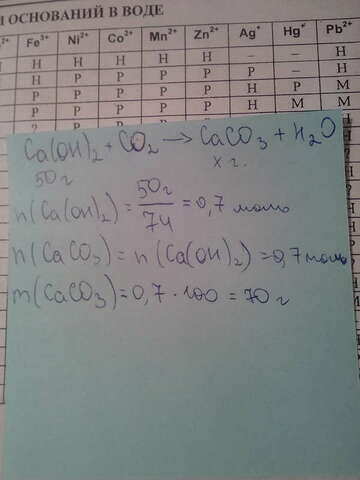 И ОСНОВАНИЙ В ВОДЕ
2+ Fe3+ Ni2+ Co2+ Mn2+ Zn2+ Ag+ Hg+ Pb2+
Н Н Н Н Н – – Н
Н Р Р Р Р Р – Н
Р Р Р Р Р Н Р М
Р Р Р Р Р Н М М
?
Ca(OH)2 + CO2 → CaCO3 + H2O
50 г x г.
n(Ca(OH)2) = 50г/74 = 0,7 моль
n(CaCO3) = n(Ca(OH)2) = 0,7 моль
m(CaCO3) = 0,7 · 100 = 70 г